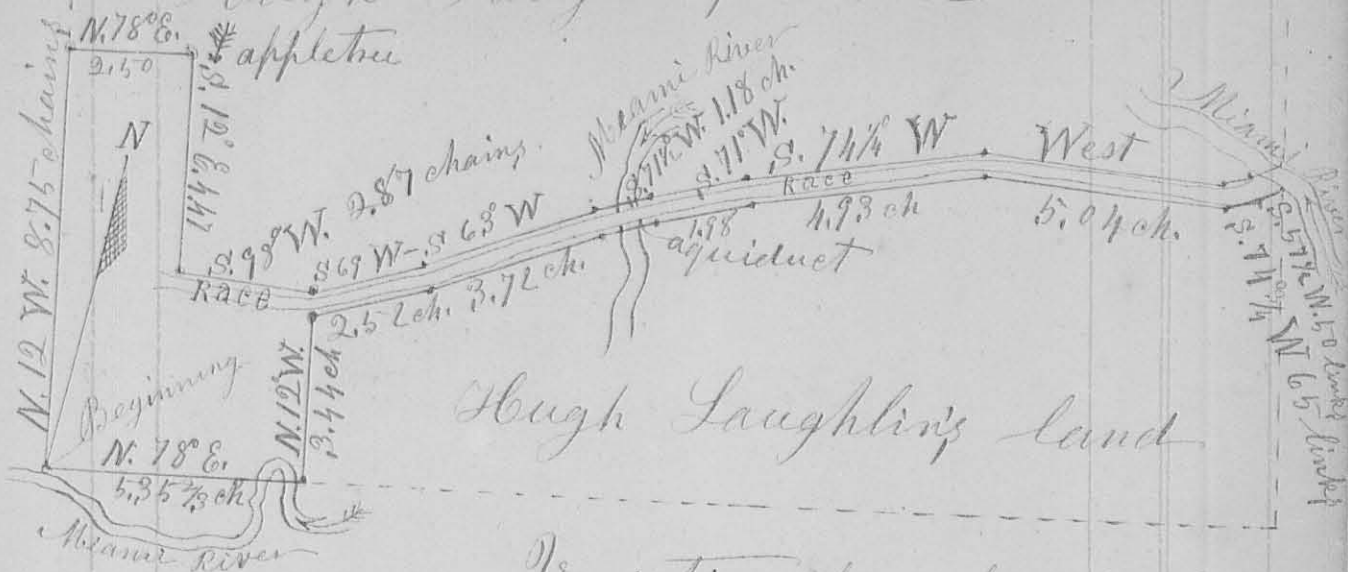 N. 78° E.
2.50
appletree
N. 12 W. 8.75 chains
S. 12° E 4.47
N
S. 98° W. 2.87 chains.
Race
S 69 W - S. 63° W
2.52 ch. 3.72 ch.
Meami River
S. 71½° W. 1.18 ch.
S. 71° W.
1.98
aquiduct
S. 74¼ W
Race
4.93 ch
West
5.04 ch.
Miami River
S. 57½ W. 50 links
S. 74¼ W 65 links
Beginning
N. 12° W.
3.44 ch
N. 78° E.
5,35 ⅔ ch
Meami River
Hugh Laughlin's land